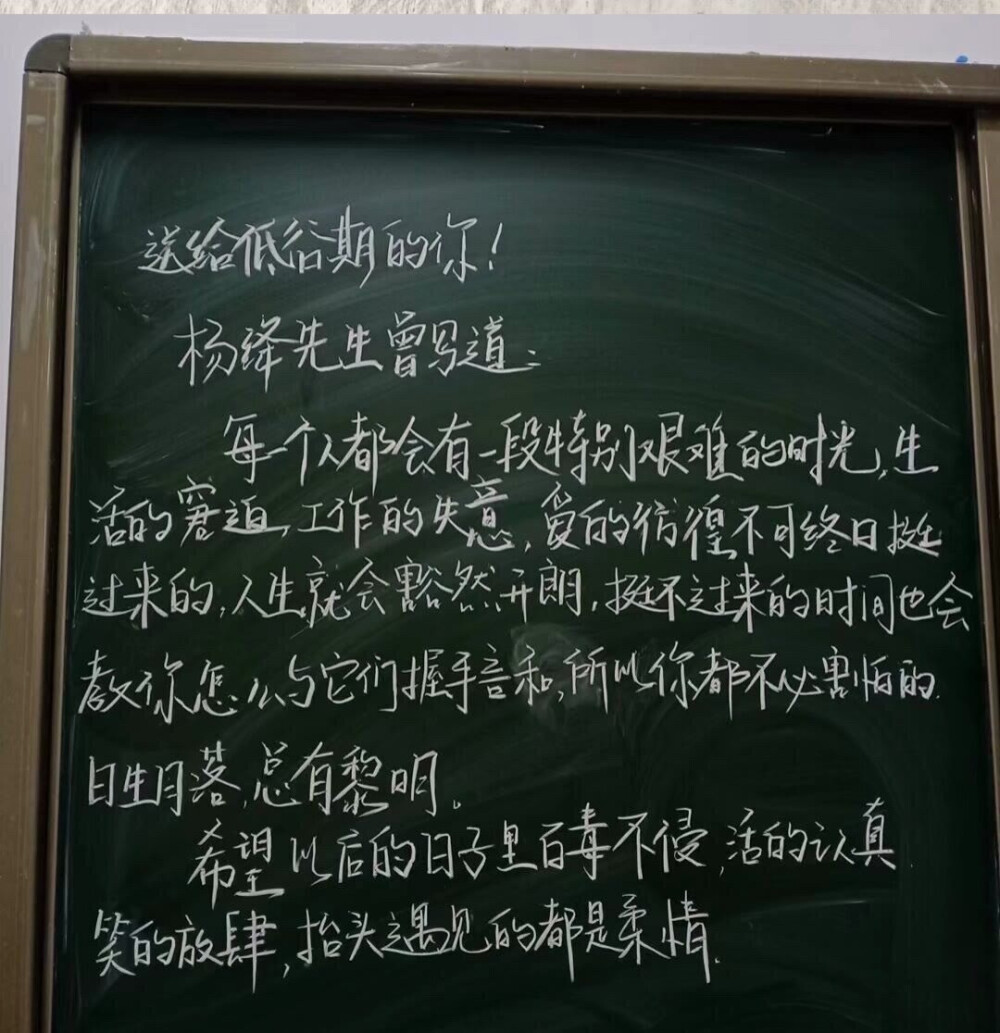 送给低谷期的你!
杨绛先生曾写道:
每一个人都会有一段特别艰难的时光,生
活的窘迫,工作的失意,爱的彷徨不可终日挺
过来的,人生就会豁然开朗,挺不过来的时间也会
教你怎么与它们握手言和,所以你都不必害怕的.
日生月落,总有黎明.
希望以后的日子里百毒不侵,活的认真
笑的放肆,抬头遇见的都是柔情.